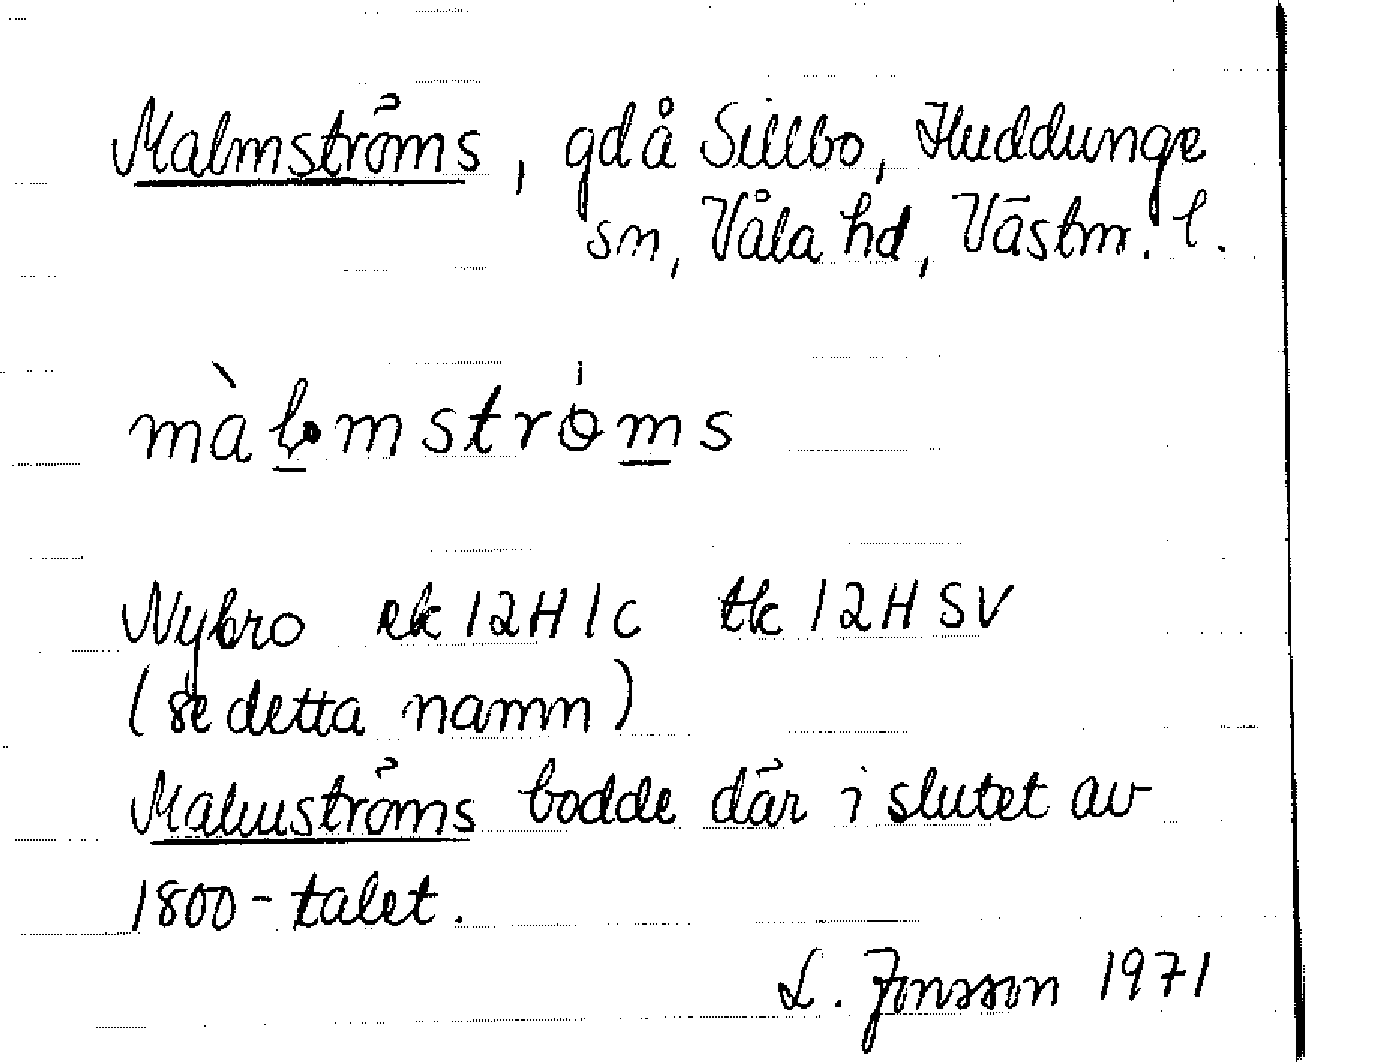 Malmströms, gd å Sillbo, Huddunge
sn, Våla hd, Västm. l.
màlmströ̀ms
Nybro ek 12H1c tk 12HSV
(se detta namn)
Malmströms bodde där i slutet av
1800-talet.
L. Jonsson 1971